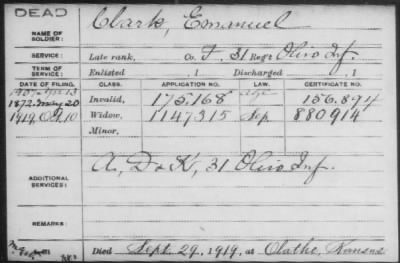 DEAD
NAME OF SOLDIER: Clark, Emanuel
SERVICE: Late rank, Co. F, 31 Reg't Ohio Inf.
TERM OF SERVICE: Enlisted , 1 Discharged , 1
DATE OF FILING. CLASS. APPLICATION NO. LAW. CERTIFICATE NO.
1872. May 20 Invalid, 175,168 156.894
1919, Oct 10 Widow, 1147315 Sep 880914
Minor,
ADDITIONAL SERVICES: A, D & K, 31 Ohio Inf.
REMARKS:
Died Sept. 29, 1919, at Olathe, Kansas